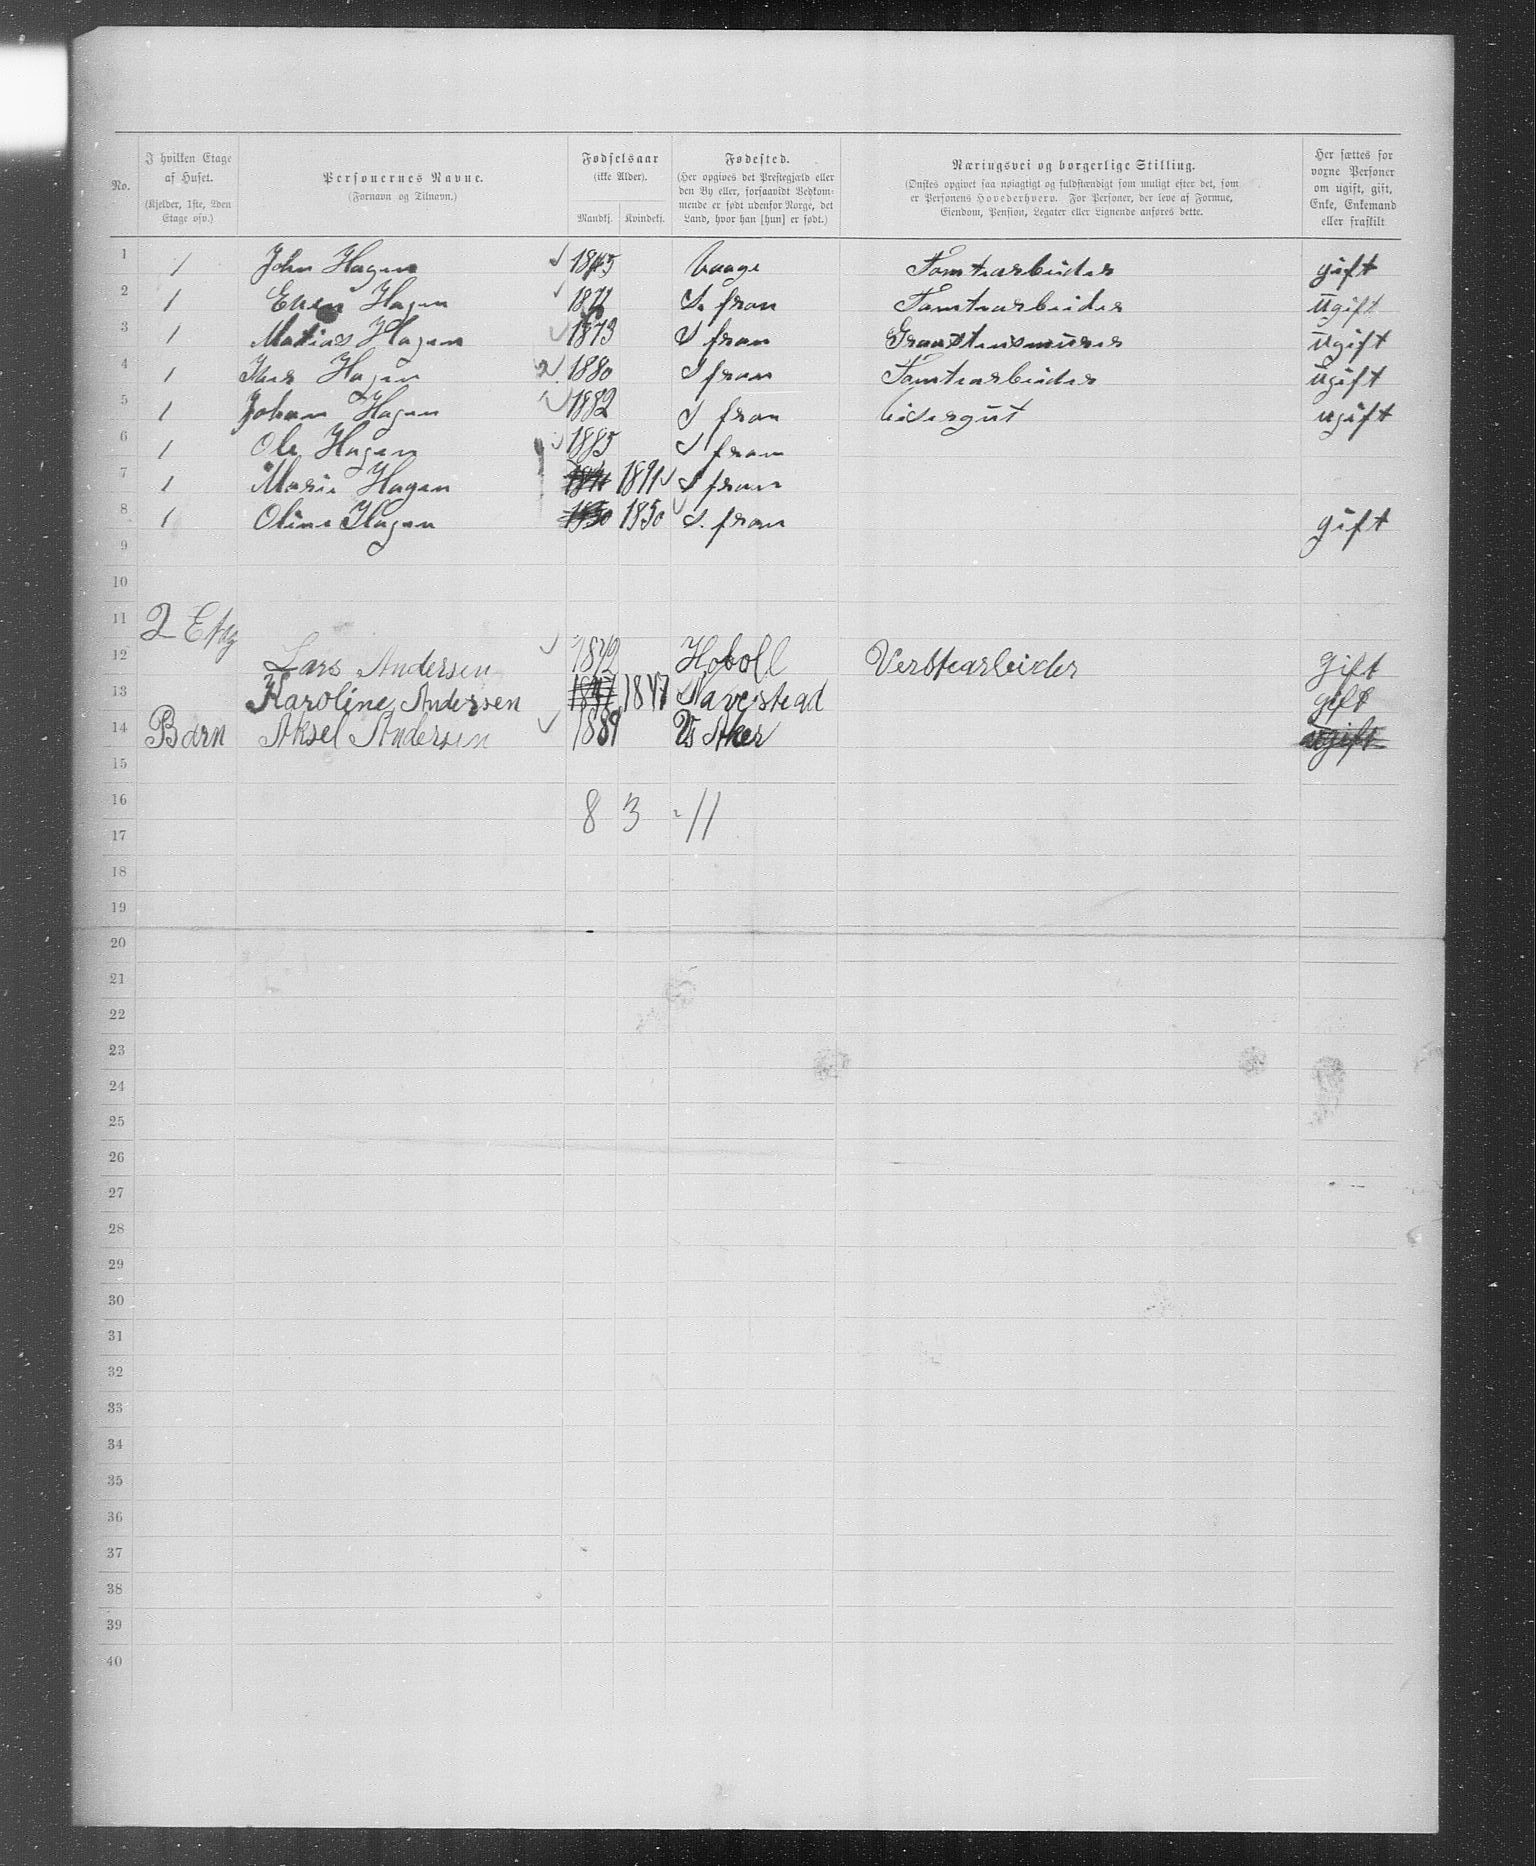 No.
I hvilken Etage af Huset.
(Kjelder, 1ste, 2den Etage osv.)
Personernes Navne.
(Fornavn og Tilnavn.)
Fødselsaar
(ikke Alder).
Mandkj. Kvindekj.
Fødested.
(Her opgives det Prestegjæld eller den By eller, forsaavidt Vedkommende er født udenfor Norge, det Land, hvor han [hun] er født.)
Næringsvei og borgerlige Stilling.
(Ønskes opgivet saa nøiagtigt og fuldstændigt som muligt efter det, som er Personens Hovederhverv. For Personer, der leve af Formue, Eiendom, Pension, Legater eller Lignende anføres dette.
Her sættes for voxne Personer om ugift, gift, Enke, Enkemand eller fraskilt
1 1 John Hagen 1845 Vaage Tomtearbeider gift
2 1 Even Hagen S. fron Tomtearbeider ugift
3 1 Matias Hagen 1873 S fron Graastensmurer ugift
4 1 Iver Hagen 1880 S fron Tomtearbeider ugift
5 1 Johan Hagen 1882 S fron visergut ugift
6 1 Ole Hagen 1885 S fron
7 1 Marie Hagen 1891 S fron
8 1 Oline Hagen 1850 1850 S. fron gift
9
10
11 2 Etag
12 Lars Andersen 1842 Hoboll Verstearbeider Gift
13 Karoline Andersen 1847 1847 Navestead gift
14 Barn Aksel Andersen 1889 V Aker ugift
15
16 8 3 = 11
17
18
19
20
21
22
23
24
25
26
27
28
29
30
31
32
33
34
35
36
37
38
39
40